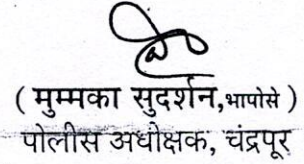 ( मुम्मका सुदर्शन,भापोसे )
पोलीस अधीक्षक, चंद्रपूर